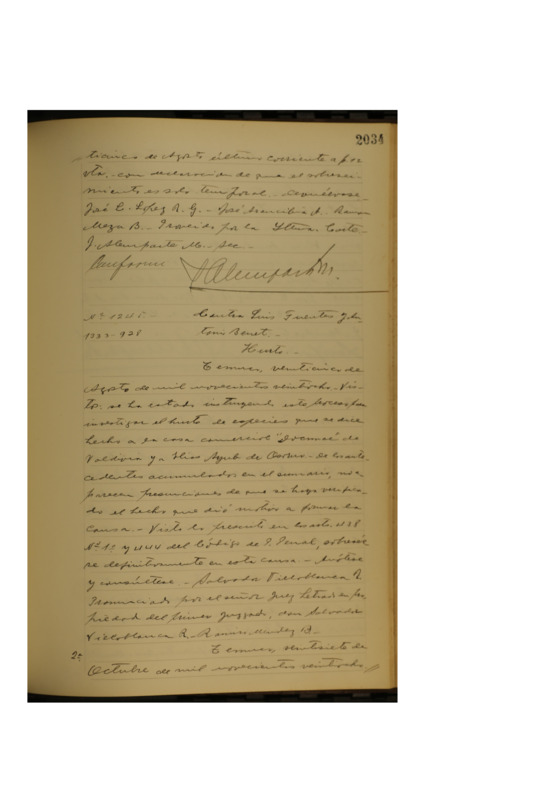 2034
ticinco de Agosto último corriente a fs.
vta. con declaracion de que el sobresei-
miento es solo temporal.- Devuélvase.-
José C. López R. G.- José A.- Ramon
Meza B.- Proveida por la Iltma. Corte.-
J. Alemparte M.- Sec.-
Conforme
JAlemparte M.
Nº 1245.- Contra Luis Fuentes y An-
-928 tonio Benet.-
Hurto.-
Temuco, veinticinco de
Agosto de mil novecientos veintiocho.- Vis-
tos: se ha estado instruyendo este proceso para
investigar el hurto de especies que se dice
hecho a la casa comercial de
Valdivia y a Elias Ayub de Osorno.- De los ante-
cedentes acumulados en el sumario, no a-
parecen presunciones de que se haya verifica-
do el hecho que dió motivo a formar la
causa.- Visto lo presente en los arts. 438
Nº 1º y 444 del Código de P. Penal, sobresé-
se definitivamente en esta causa.- Anótese
y consúltese.- Salvador Villablanca R.
Pronunciado por el señor Juez Letrado en pro-
piedad del primer juzgado, don Salvador
Villablanca R.- Ramiro Mendez B.-
2ª Temuco, veintisiete de
Octubre de mil novecientos veintiocho.